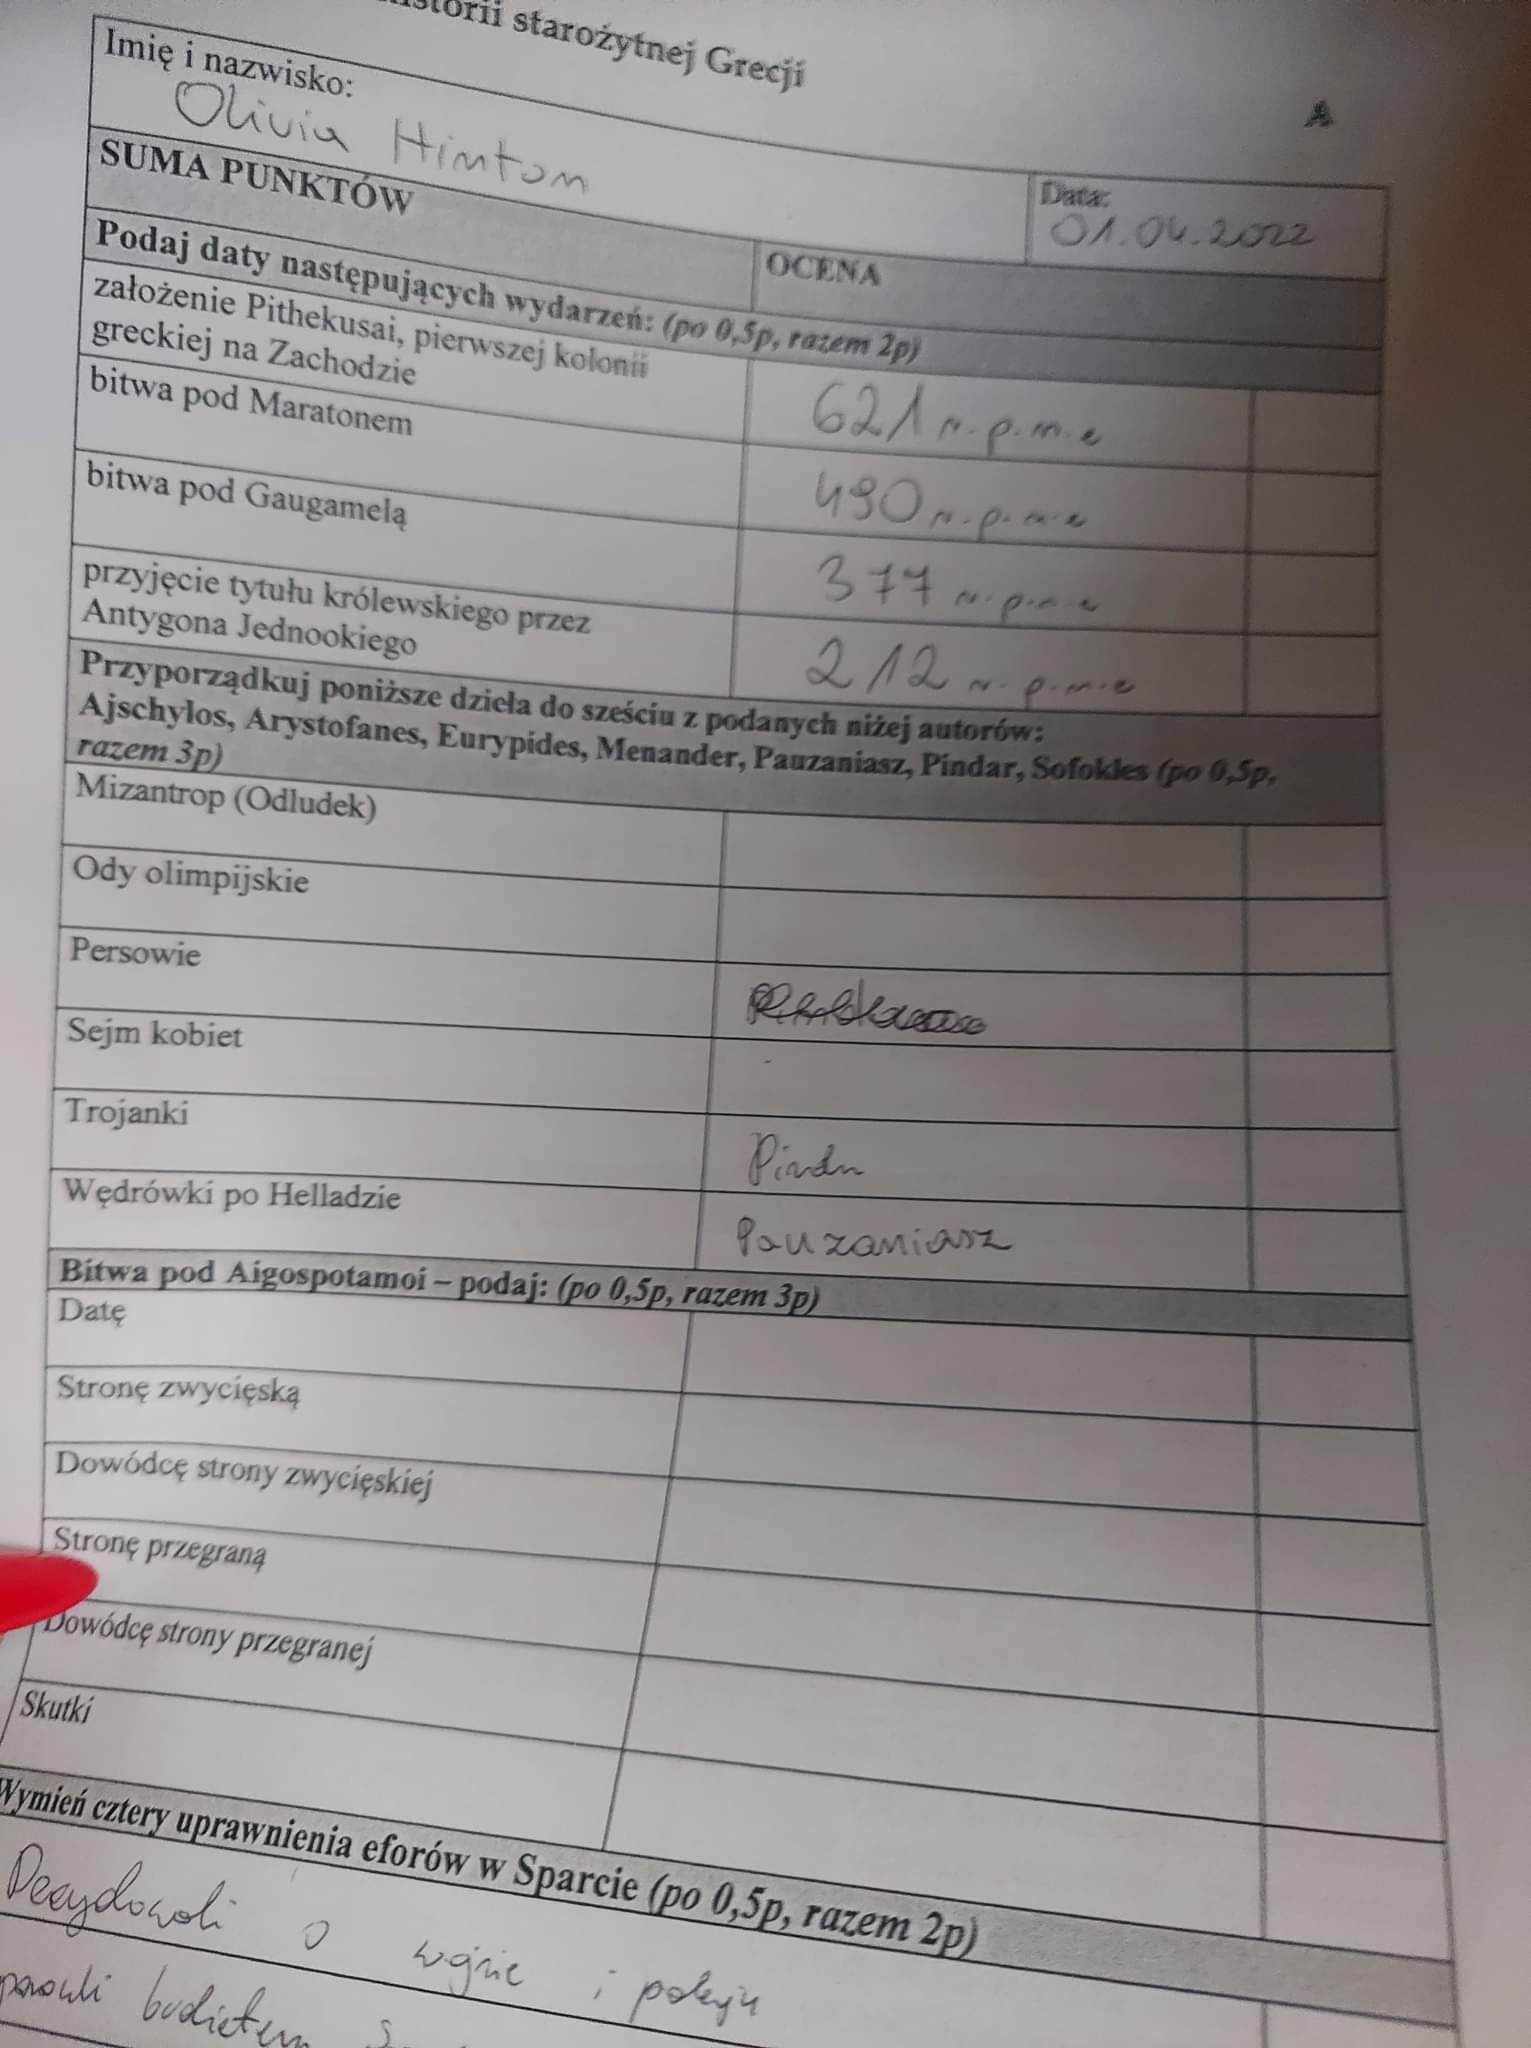 historii starożytnej Grecji
A
Imię i nazwisko:
Olivia Hinton
Data:
01.04.2022
SUMA PUNKTÓW
OCENA
Podaj daty następujących wydarzeń: (po 0,5p, razem 2p)
założenie Pithekusai, pierwszej kolonii
greckiej na Zachodzie
621 n.p.m.e
bitwa pod Maratonem
490 n.p.m.e
bitwa pod Gaugamelą
377 n.p.m.e
przyjęcie tytułu królewskiego przez
Antygona Jednookiego
212 n.p.m.e
Przyporządkuj poniższe dzieła do sześciu z podanych niżej autorów:
Ajschylos, Arystofanes, Eurypides, Menander, Pauzaniasz, Pindar, Sofokles (po 0,5p,
razem 3p)
Mizantrop (Odludek)
Ody olimpijskie
Persowie
Sejm kobiet
Trojanki
Wędrówki po Helladzie
Pauzaniasz
Bitwa pod Aigospotamoi – podaj: (po 0,5p, razem 3p)
Datę
Stronę zwycięską
Dowódcę strony zwycięskiej
Stronę przegraną
Dowódcę strony przegranej
Skutki
Wymień cztery uprawnienia eforów w Sparcie (po 0,5p, razem 2p)
Decydowali o wojnie i pokoju